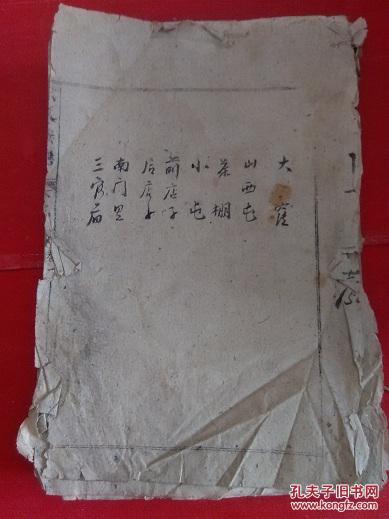 大窪
山西屯
茶棚
小屯
前店子
后店子
南门里
三官庙
孔夫子旧书网
www.kongfz.com